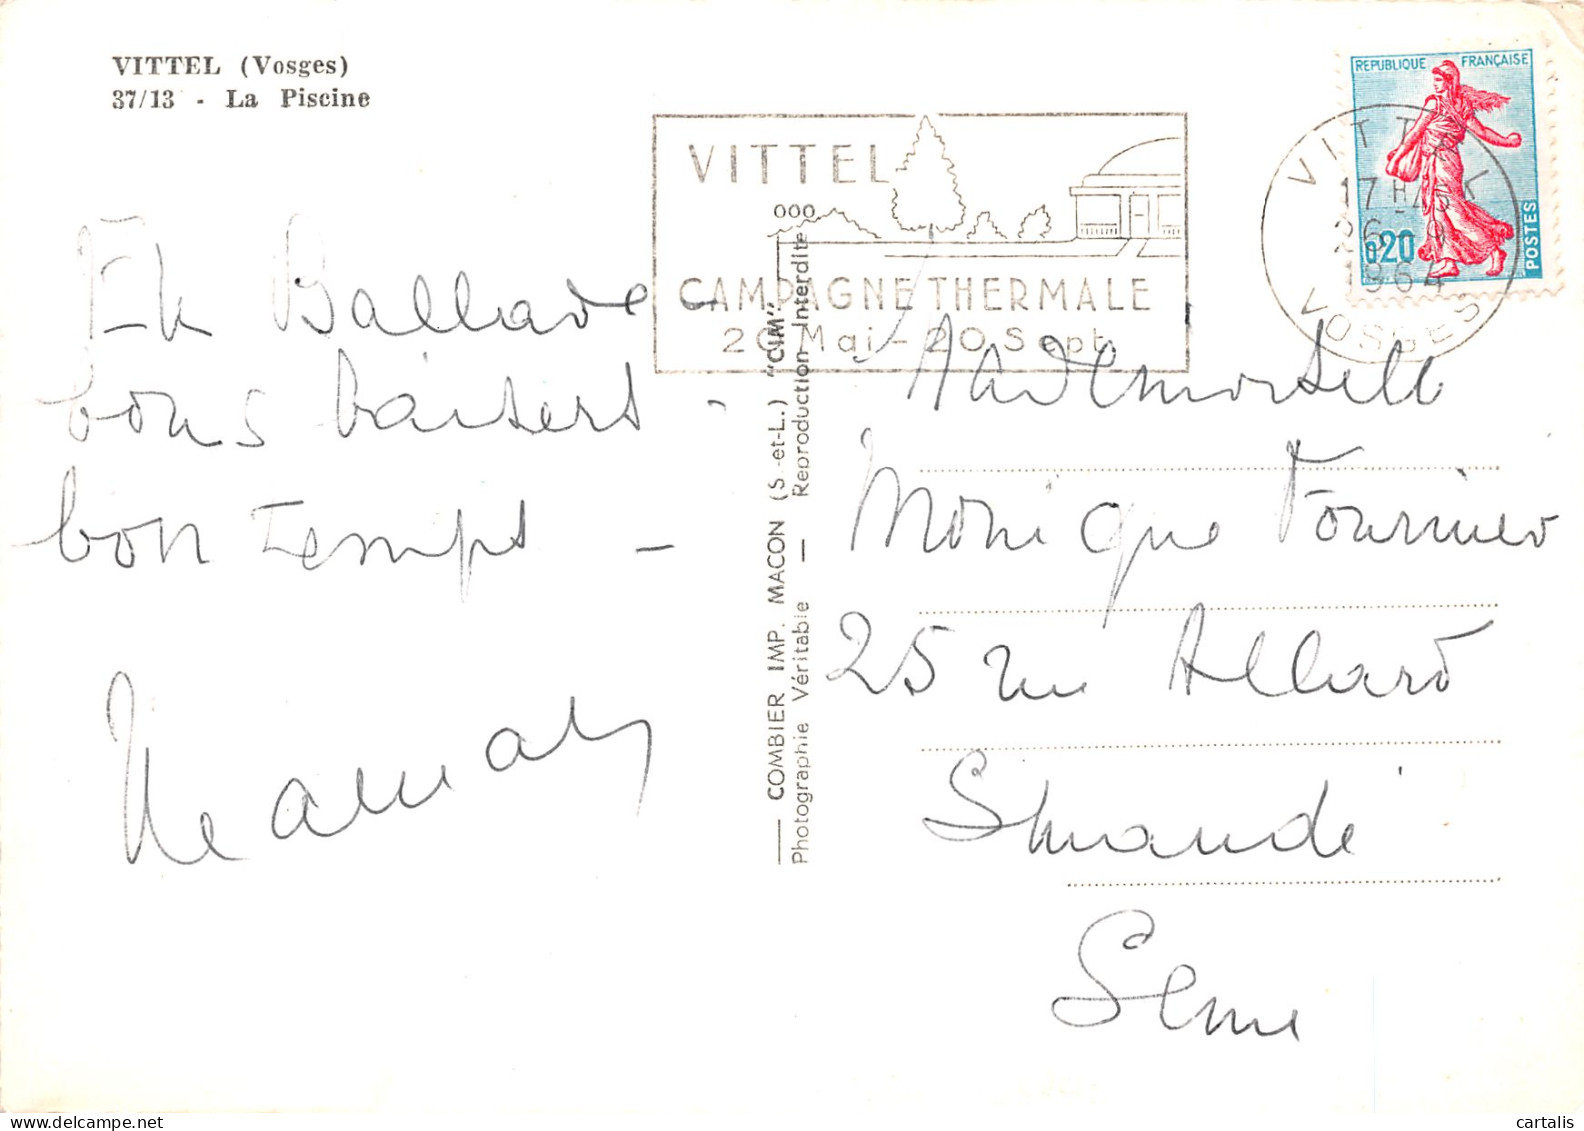 VITTEL (Vosges)
37/13 - La Piscine
En Ballade -
bons baisers -
bon temps -
VITTEL
CAMPAGNE THERMALE
20 Mai - 20 Sept
VITTEL
17 H 45
1964
VOSGES
REPUBLIQUE FRANÇAISE
0,20
POSTES
COMBIER IMP. MACON (S.-et-L.) "CIM"
Photographie Véritable — Reproduction Interdite
Mademoiselle
Monique Fournier
25 rue Allard
St Mandé
Seine
cartalis